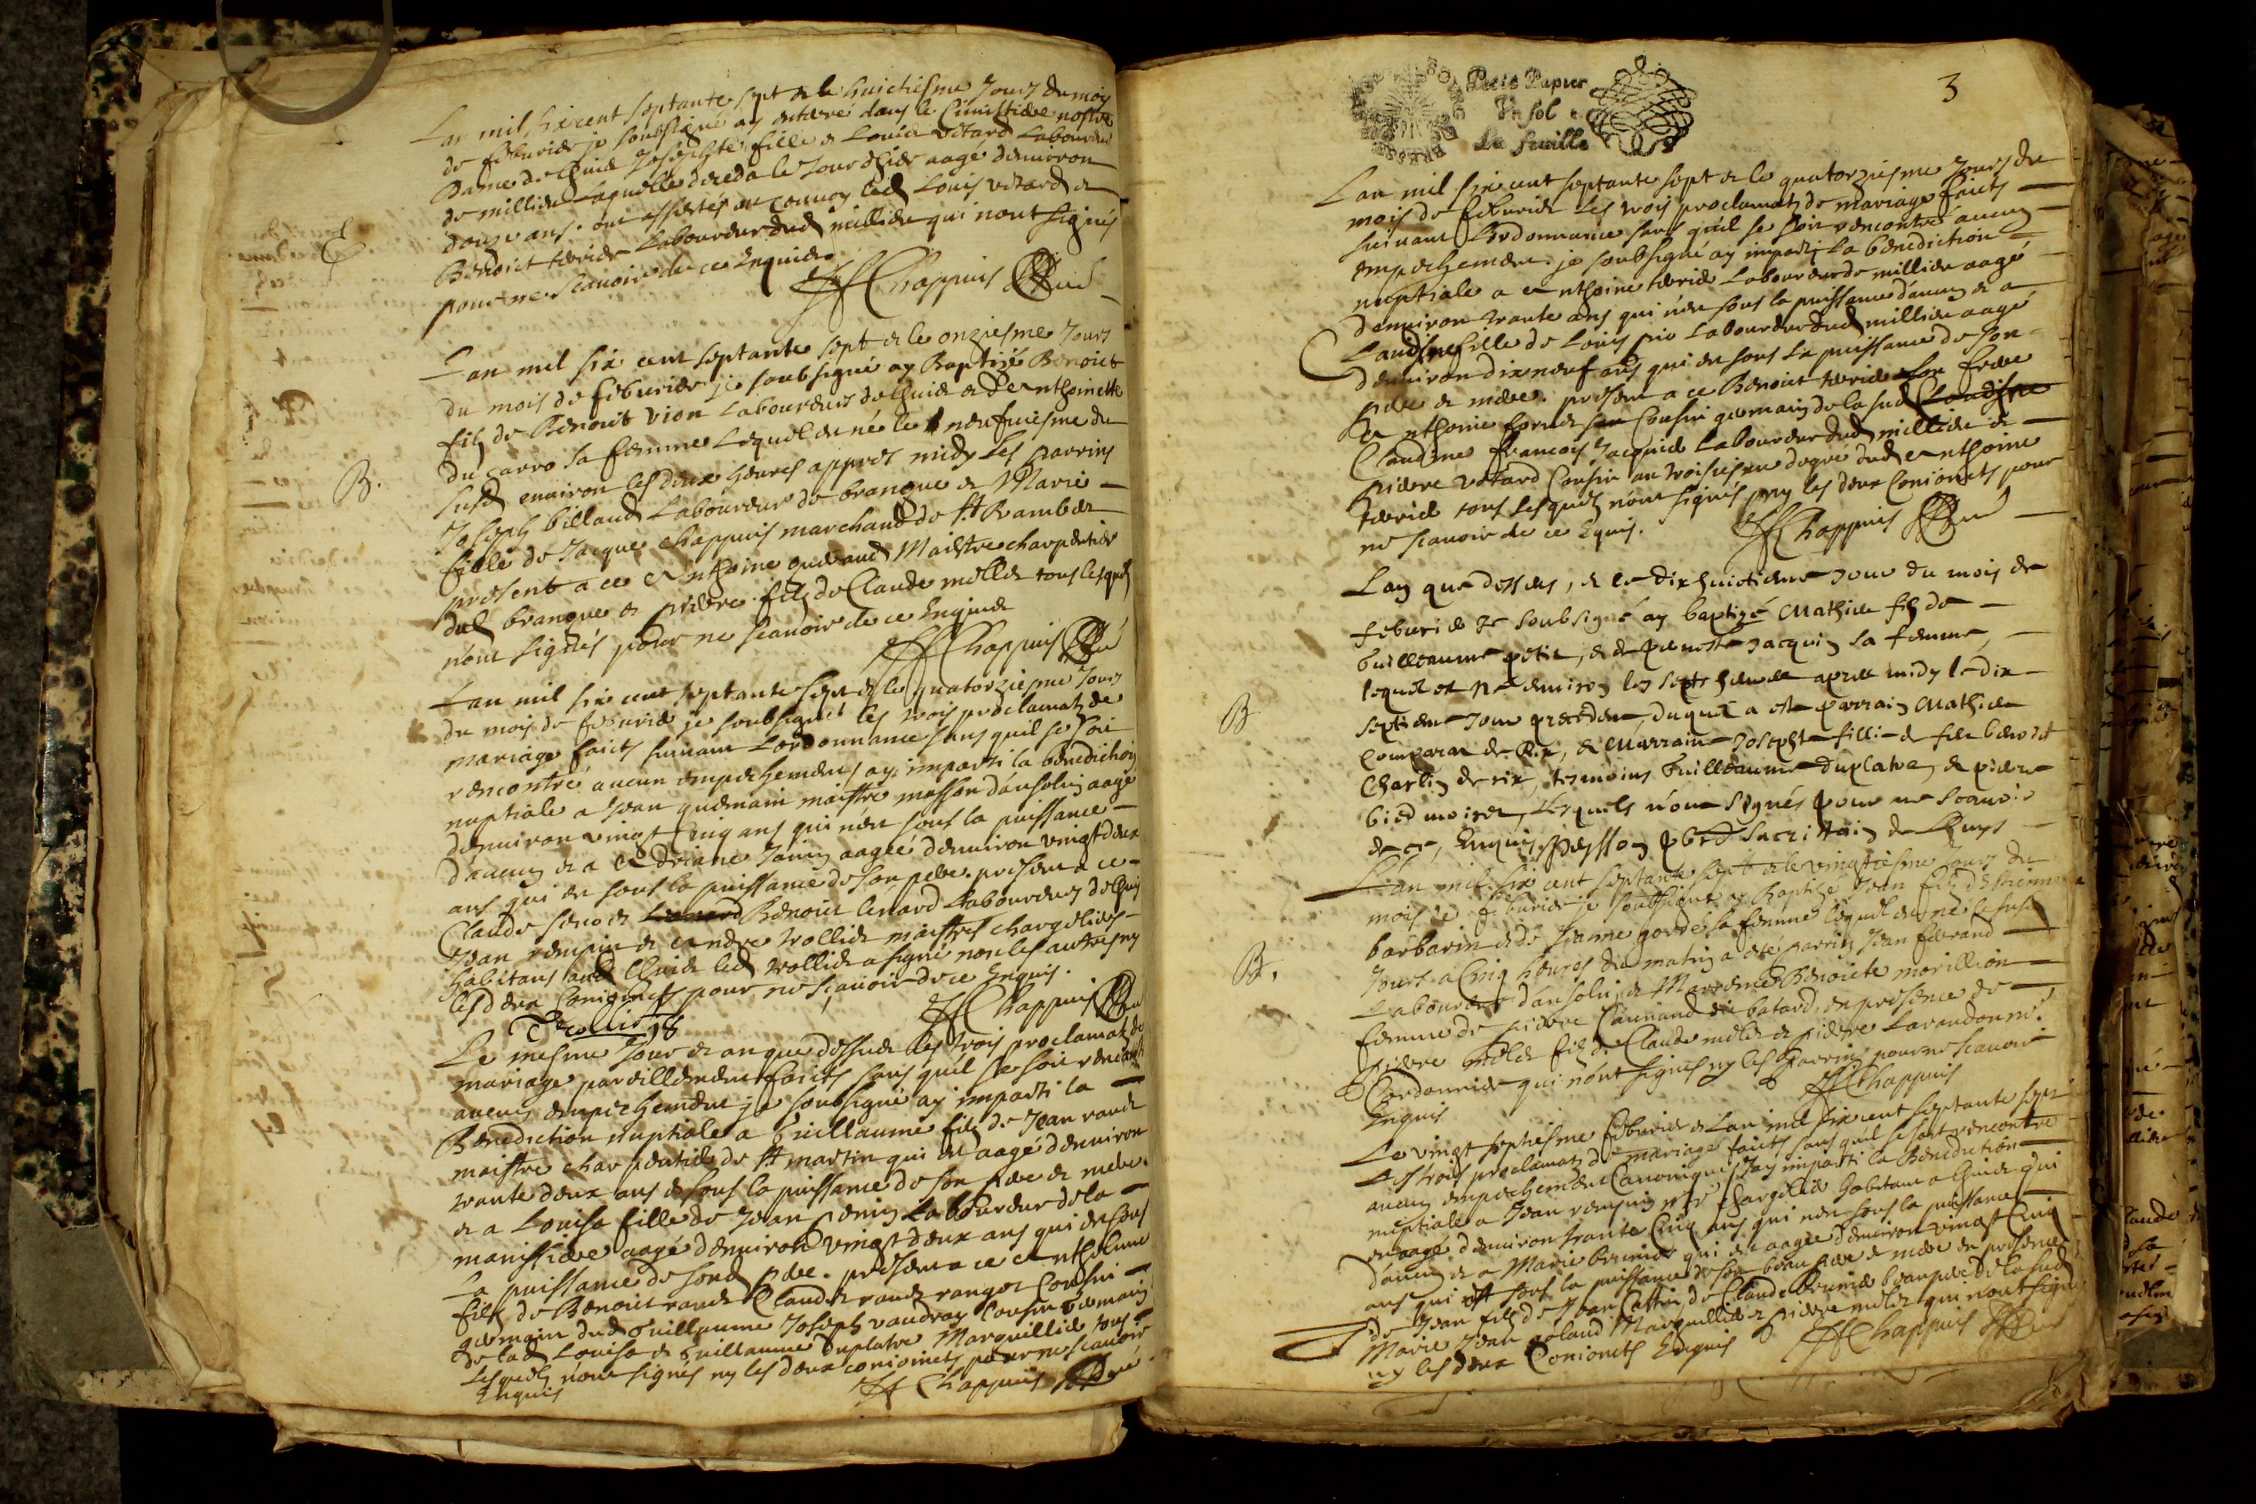 Lan mil six cent septante sept & le huictiesme Jours du mois
de feburier je soubsigné ay enterré dans le Cimistiere nostre
Dame de Cluid Josephte fille de Louis votard Labourdeur
de millieu Laquelle deceda le Jour d'hier aagé denuiron
douze ans. ont assistés au conuoy led Louis votard &
E
Benoict terrier Labourdeur dud millieu qui nont signés
pour ne scauoir de ce Enquis.
Chappuis Curé
Lan mil six cent septante sept & le onziesme Jours
du mois de feburier je soubsigné ay Baptizé Benoict
filz de Benoit vion Labourdeurs de Cluid & d'Anthoinette
du carro sa femme Lequel est né le neufuiesme du
B.
susd enuiron les deux heures appres midy Les parrins
Joseph billaud Labourdeur de branque & Marie
fille de Jacque Chappuis marchand de St Rambert
present a ce Anthoine gueraud Maistre charpentier
dud branque & pierre filz de Claude mollet tous lesquels
nont signés pour ne scauoir de ce Enquis
Chappuis Curé
Lan mil six cent septante sept & le quatorziesme Jours
du mois de feburier je soubsigné les trois proclamatz de
mariage faicts suiuant Lordonnance sans quil se soit
rencontré aucun empechements ay imparti la benediction
nuptiale a Jean guemain maistre masson d'ansolin aagé
denuiron vingt Cinq ans qui nest sous la puissance
d'aucun & a Adriane Janin aagée denuiron vingt deux
ans qui est sous la puissance de son pere. present a ce
Claude Benoit Lenard Labourdeurs de Cluy
Jean & Andre trollier maistres
habitans aud Cluid led trollier a signé non les autres ny
les deux Conioincts pour ne scauoir de ce Enquis.
Trollier
Chappuis Curé
Le mesme Jour & an que dessus les trois proclamatz de
mariage pareillement faicts sans quil se soit rencontré
aucun empechement je soubsigné ay imparti la
Benediction nuptiale a Guillaume filz de Jean
maistre charpentier de St martin qui est aagé denuiron
trante deux ans & sous la puissance de son pere & mere
& a Louise fille de Jean Labourdeur de la
aagé denuiron vingt deux ans qui est sous
La puissance de sond pere. present a ce Anthelme
filz de Benoict Claude Cousin
germain dud Guillaume Joseph vaudray Cousin germain
de lad Louise & Guillaume Duplatre Marguillier tous
Lesquels nont signés ny les deux conioincts pour ne scauoir
Enquis
Chappuis Curé
Petit Papier
Vn sol
La feuille
3
Lan mil six cent septante sept & le quatorziesme Jours du
mois de feburier les trois proclamatz de mariage faicts
suiuant Lordonnance sans quil se soit rencontré aucun
empechement. je soubsigné ay imparti La benediction
nuptiale a Anthoine terrier Labourdeur de millieu aagé
denuiron trante ans qui nest sous la puissance d'aucun & a
Claudine fille de Louis Labourdeur dud millieu aagé
denuiron dix neuf ans qui est sous La puissance de son
pere & mere. present a ce Benoict terrier son frere
Anthoine Cousin germain de la sud Claudine
Claudine francois Jacquier Labourdeur dud millieu &
pierre votard Cousin au troisiesme degre dud Anthoine
terrier tous Lesquels nont signés ny les deux Conioincts pour
ne scauoir de ce Equis.
Chappuis Curé
Lan que dessus, & le dix huictieme Jour du mois de
feburier Je soubsigné ay baptizé Mathieu filz de
Guilleaume petit, & de pernette Jacquin sa femme,
B
lequel est né enuiron les sept heures apres midy le dix
septieme Jour precedent, duquel a esté parrain Mathieu
de Rix, & Marraine Josephte fillie de feu benoist
Charlin de rix, tesmoins Guilleaume duplatre, & pierre
bied moiret, Lesquels nont signés pour ne scauoir
de ce, Enquis, pbre Sacristain de Lhuys
Lan mil six cent septante sept & le vingtiesme Jours du
mois de feburier je soubsigné ay Baptizé Jean filz d'Estienne
barbarin & de Jeanne gorde sa femme lequel est né le susd
B.
Jours a Cinq heures du matin a esté parrin Jean ferrand
Labourdeur d'ansolin & Marrenne Benoicte morillion
femme de pierre batard, en presence de
pierre molet filz de Claude molet & pierre
Cordonnier qui nont signés ny les parrins pour ne scauoir
Enquis
Chappuis
Le vingt septiesme feburier & Lan mil six cent septante sept
Les trois proclamatz de mariage faicts sans quil se soit rencontré
aucun empechement Canonique Jay imparti la Benediction
nuptiale a Jean habitant a Cluid qui
est aagé denuiron trante Cinq ans qui nest sous la puissance
d'aucun & a Marie brunier qui est aagée denuiron vingt Cinq
ans qui est sous la puissance de son beau pere & mere en presence
de Jean filz de Jean Cattin de Claude Brunier beau pere de la sud
Marie Jean Marguillier & pierre molet qui nont signé
ny les deux Conioincts Enquis
Chappuis Curé